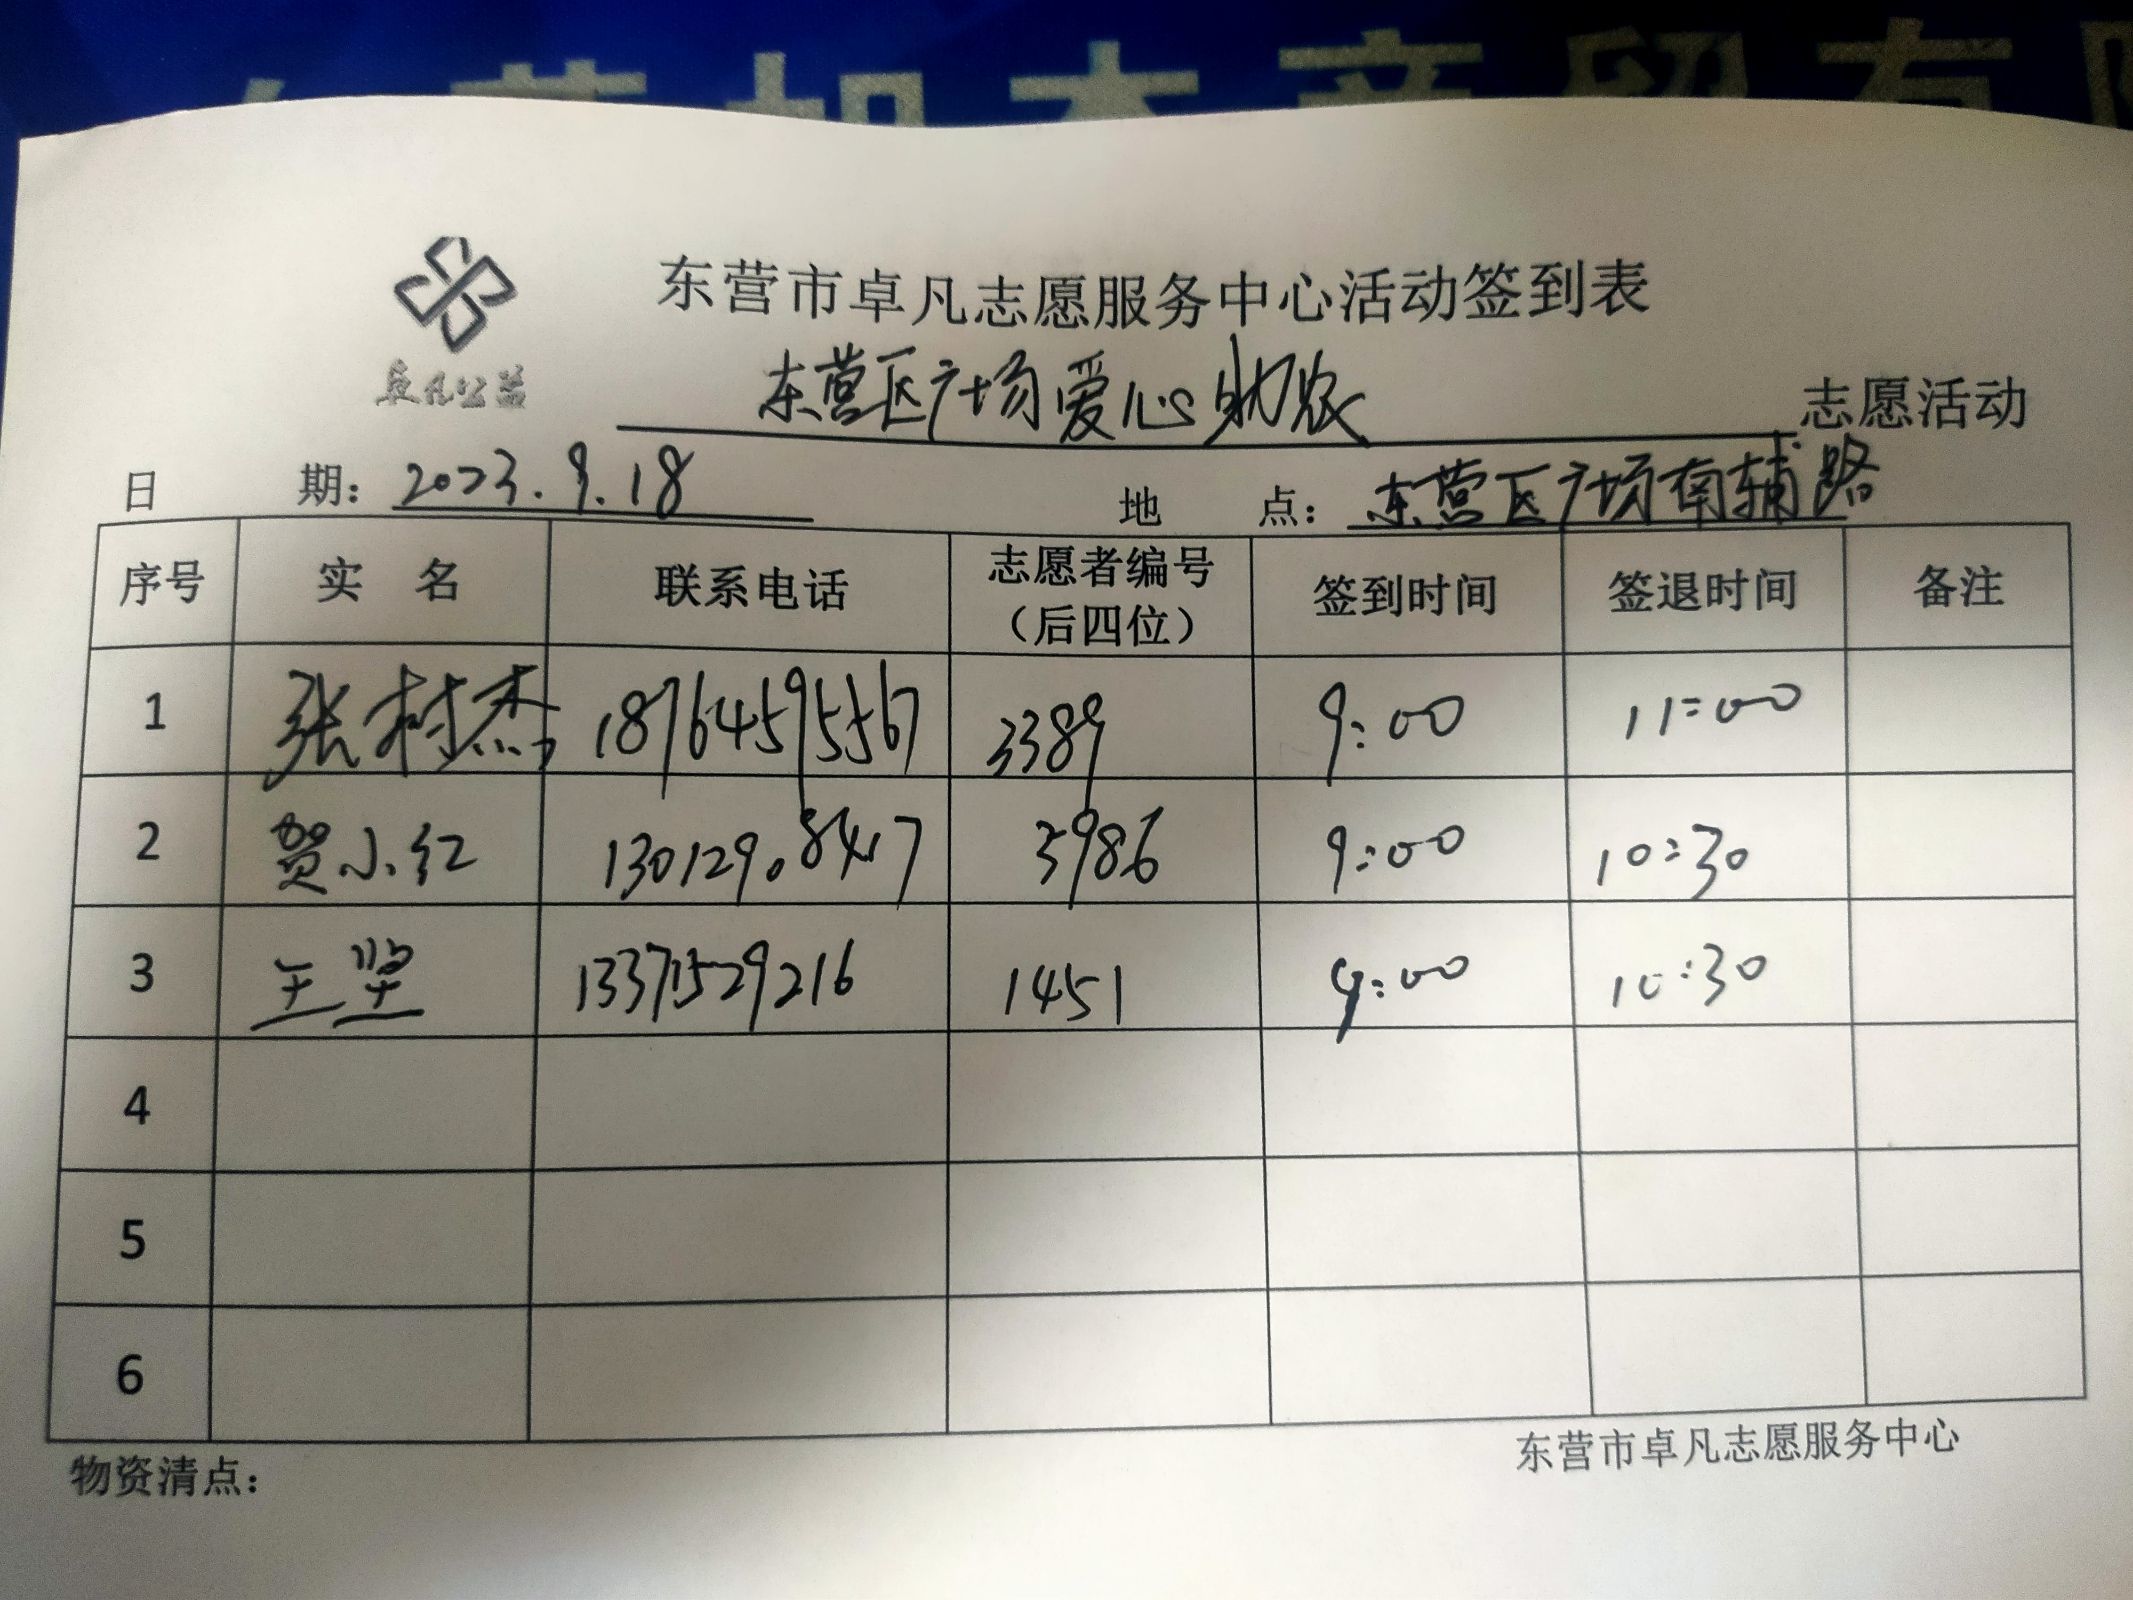 东营市卓凡志愿服务中心活动签到表
卓凡公益
东营区广场爱心助农 志愿活动
日 期：2023.9.18 地 点：东营区广场南辅路
序号 实 名 联系电话 志愿者编号（后四位） 签到时间 签退时间 备注
1 张树杰 18764595567 3389 9:00 11:00
2 贺小红 13012908417 3986 9:00 10:30
3 王坚 13371529216 1451 9:00 10:30
4
5
6
物资清点： 东营市卓凡志愿服务中心